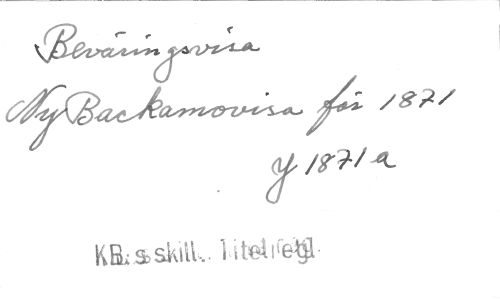 Beväringsvisa
Ny Backamovisa för 1871
Y 1871 a
KB:s skill. Titelregl.